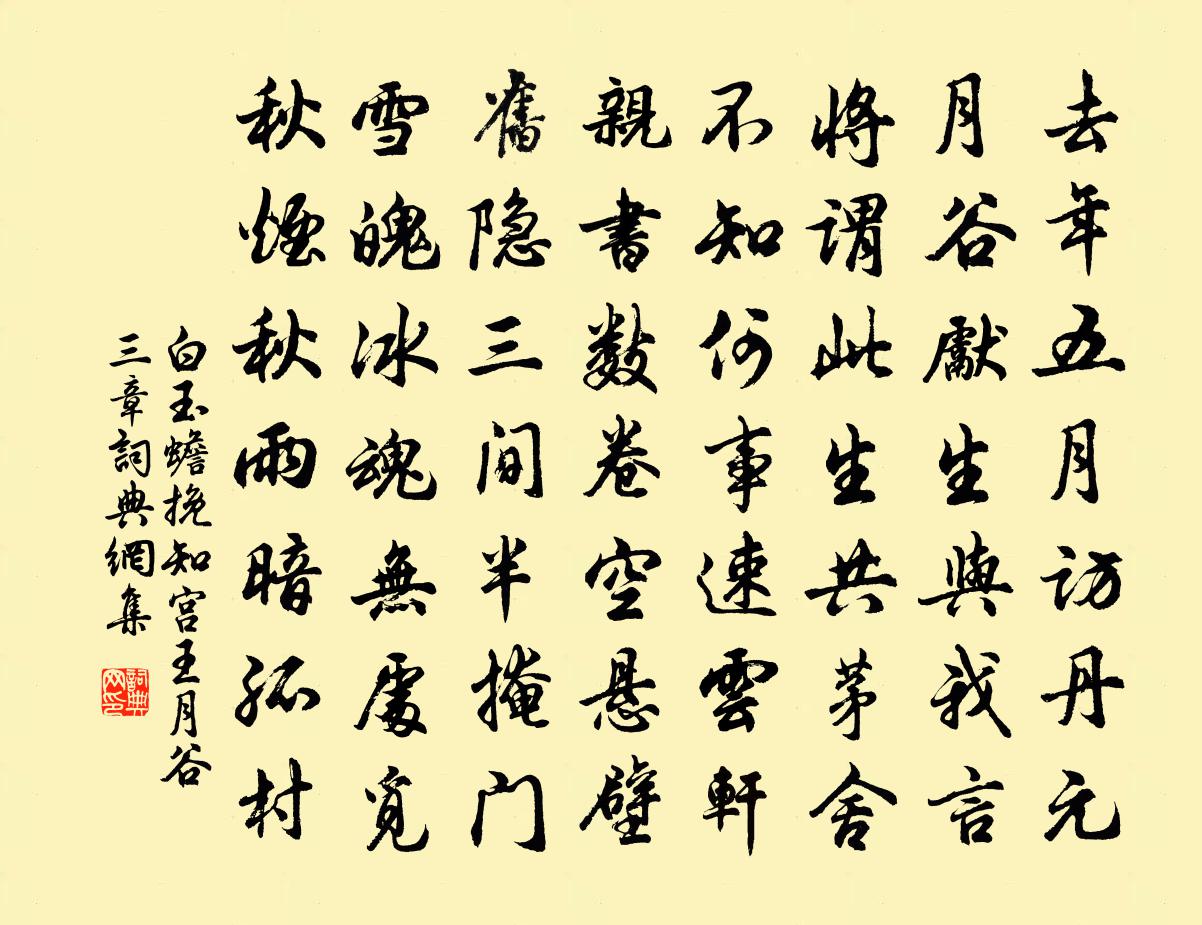 去年五月访丹元
月谷獻生與我言
將謂此生共茅舍
不知何事速雲軒
親書數卷空悬壁
舊隐三间半掩门
雪魄冰魂無處覓
秋煙秋雨暗孤村
白玉蟾挽知宫王月谷
三章詞典網集
詞典
网印